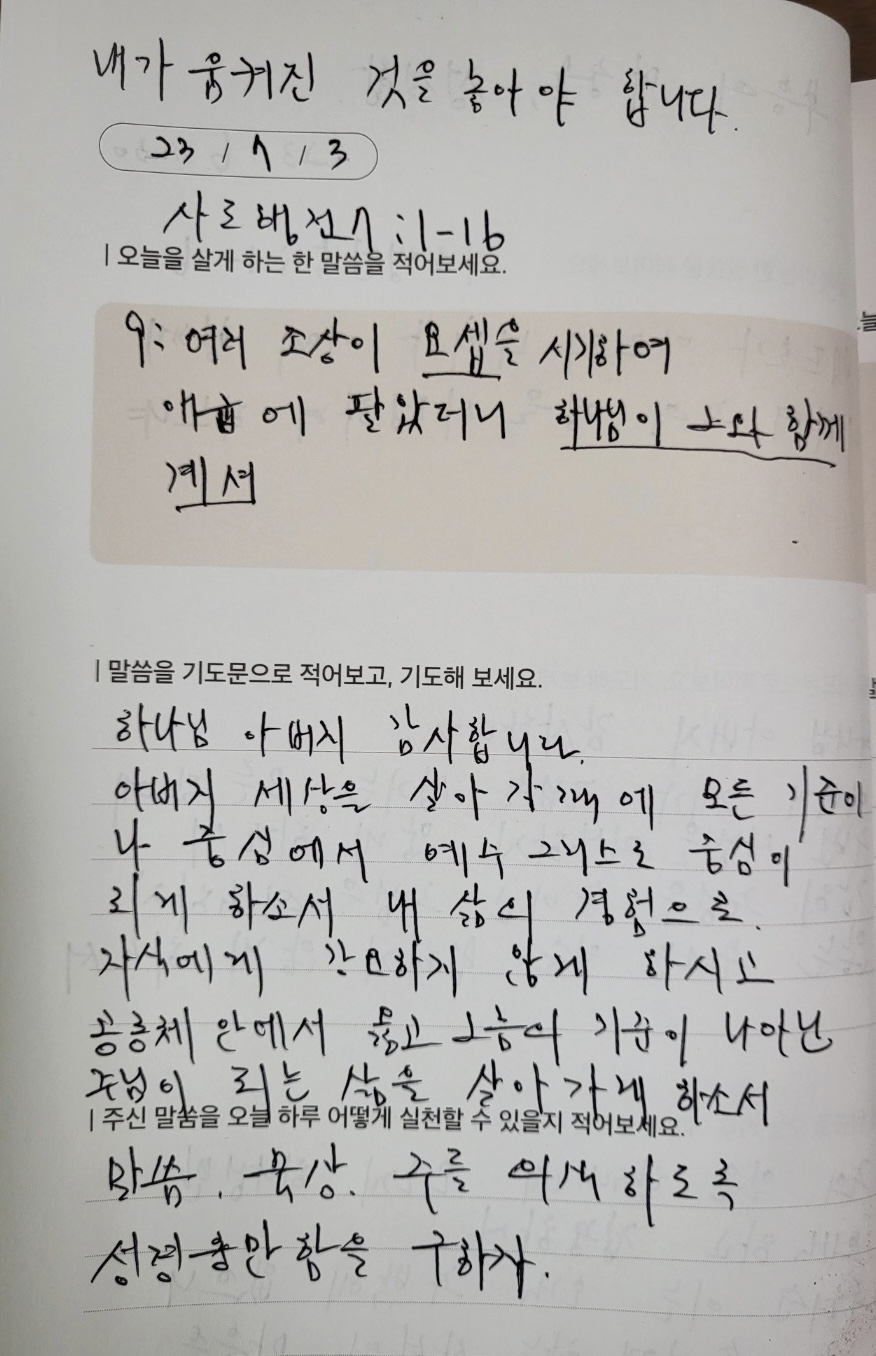 내가 움켜진 것을 놓아야 합니다.
23 / 7 / 3
사도행전 7:1-16
| 오늘을 살게 하는 한 말씀을 적어보세요.
9: 여러 조상이 요셉을 시기하여
애굽에 팔았더니 하나님이 그와 함께
계셔
| 말씀을 기도문으로 적어보고, 기도해 보세요.
하나님 아버지 감사합니다.
아버지 세상을 살아갈 때에 모든 기준이
나 중심에서 예수 그리스도 중심이
되게 하소서 내 삶의 경험으로
자식에게 강요하지 않게 하시고
공동체 안에서 옳고 그름의 기준이 나아닌
주님이 되는 삶을 살아가게 하소서
| 주신 말씀을 오늘 하루 어떻게 실천할 수 있을지 적어보세요.
말씀, 묵상, 주를 의식하도록
성령충만함을 구하자.